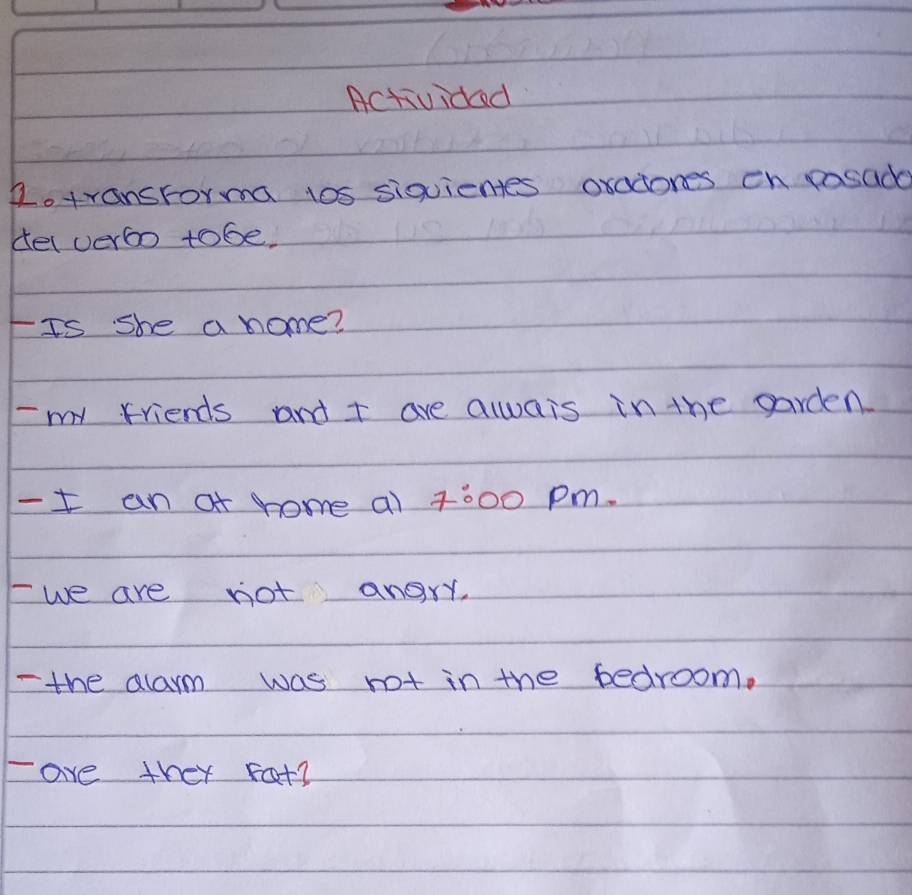 Actividad
1. transforma los siguientes oraciones en pasado
del verbo tobe.
- Is she a home?
- my friends and I are alwais in the garden.
- I an at home al 7:00 pm.
- we are not angry.
- the alarm was not in the bedroom.
- are they fat?